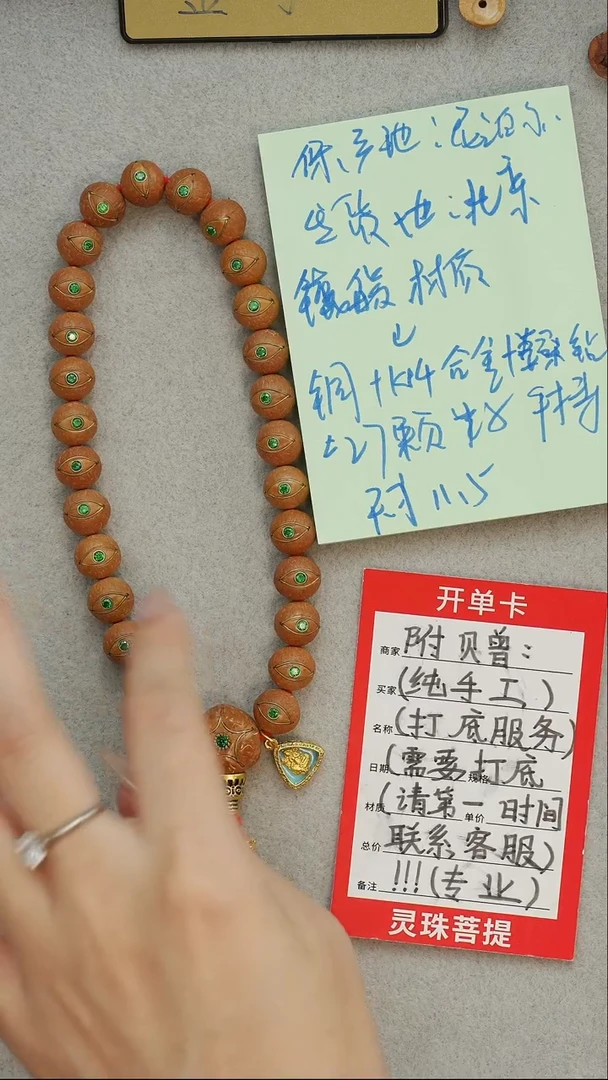 产地:尼泊尔
发货地:北京
镶嵌材质
铜+K14合金+锆钻
27颗
11.5
开单卡
商家 附贝曾:
买家 (纯手工)
名称 (打底服务)
日期 规格 (需要打底
材质 单价 (请第一时间
总价 联系客服)
备注 !!!(专业)
灵珠菩提